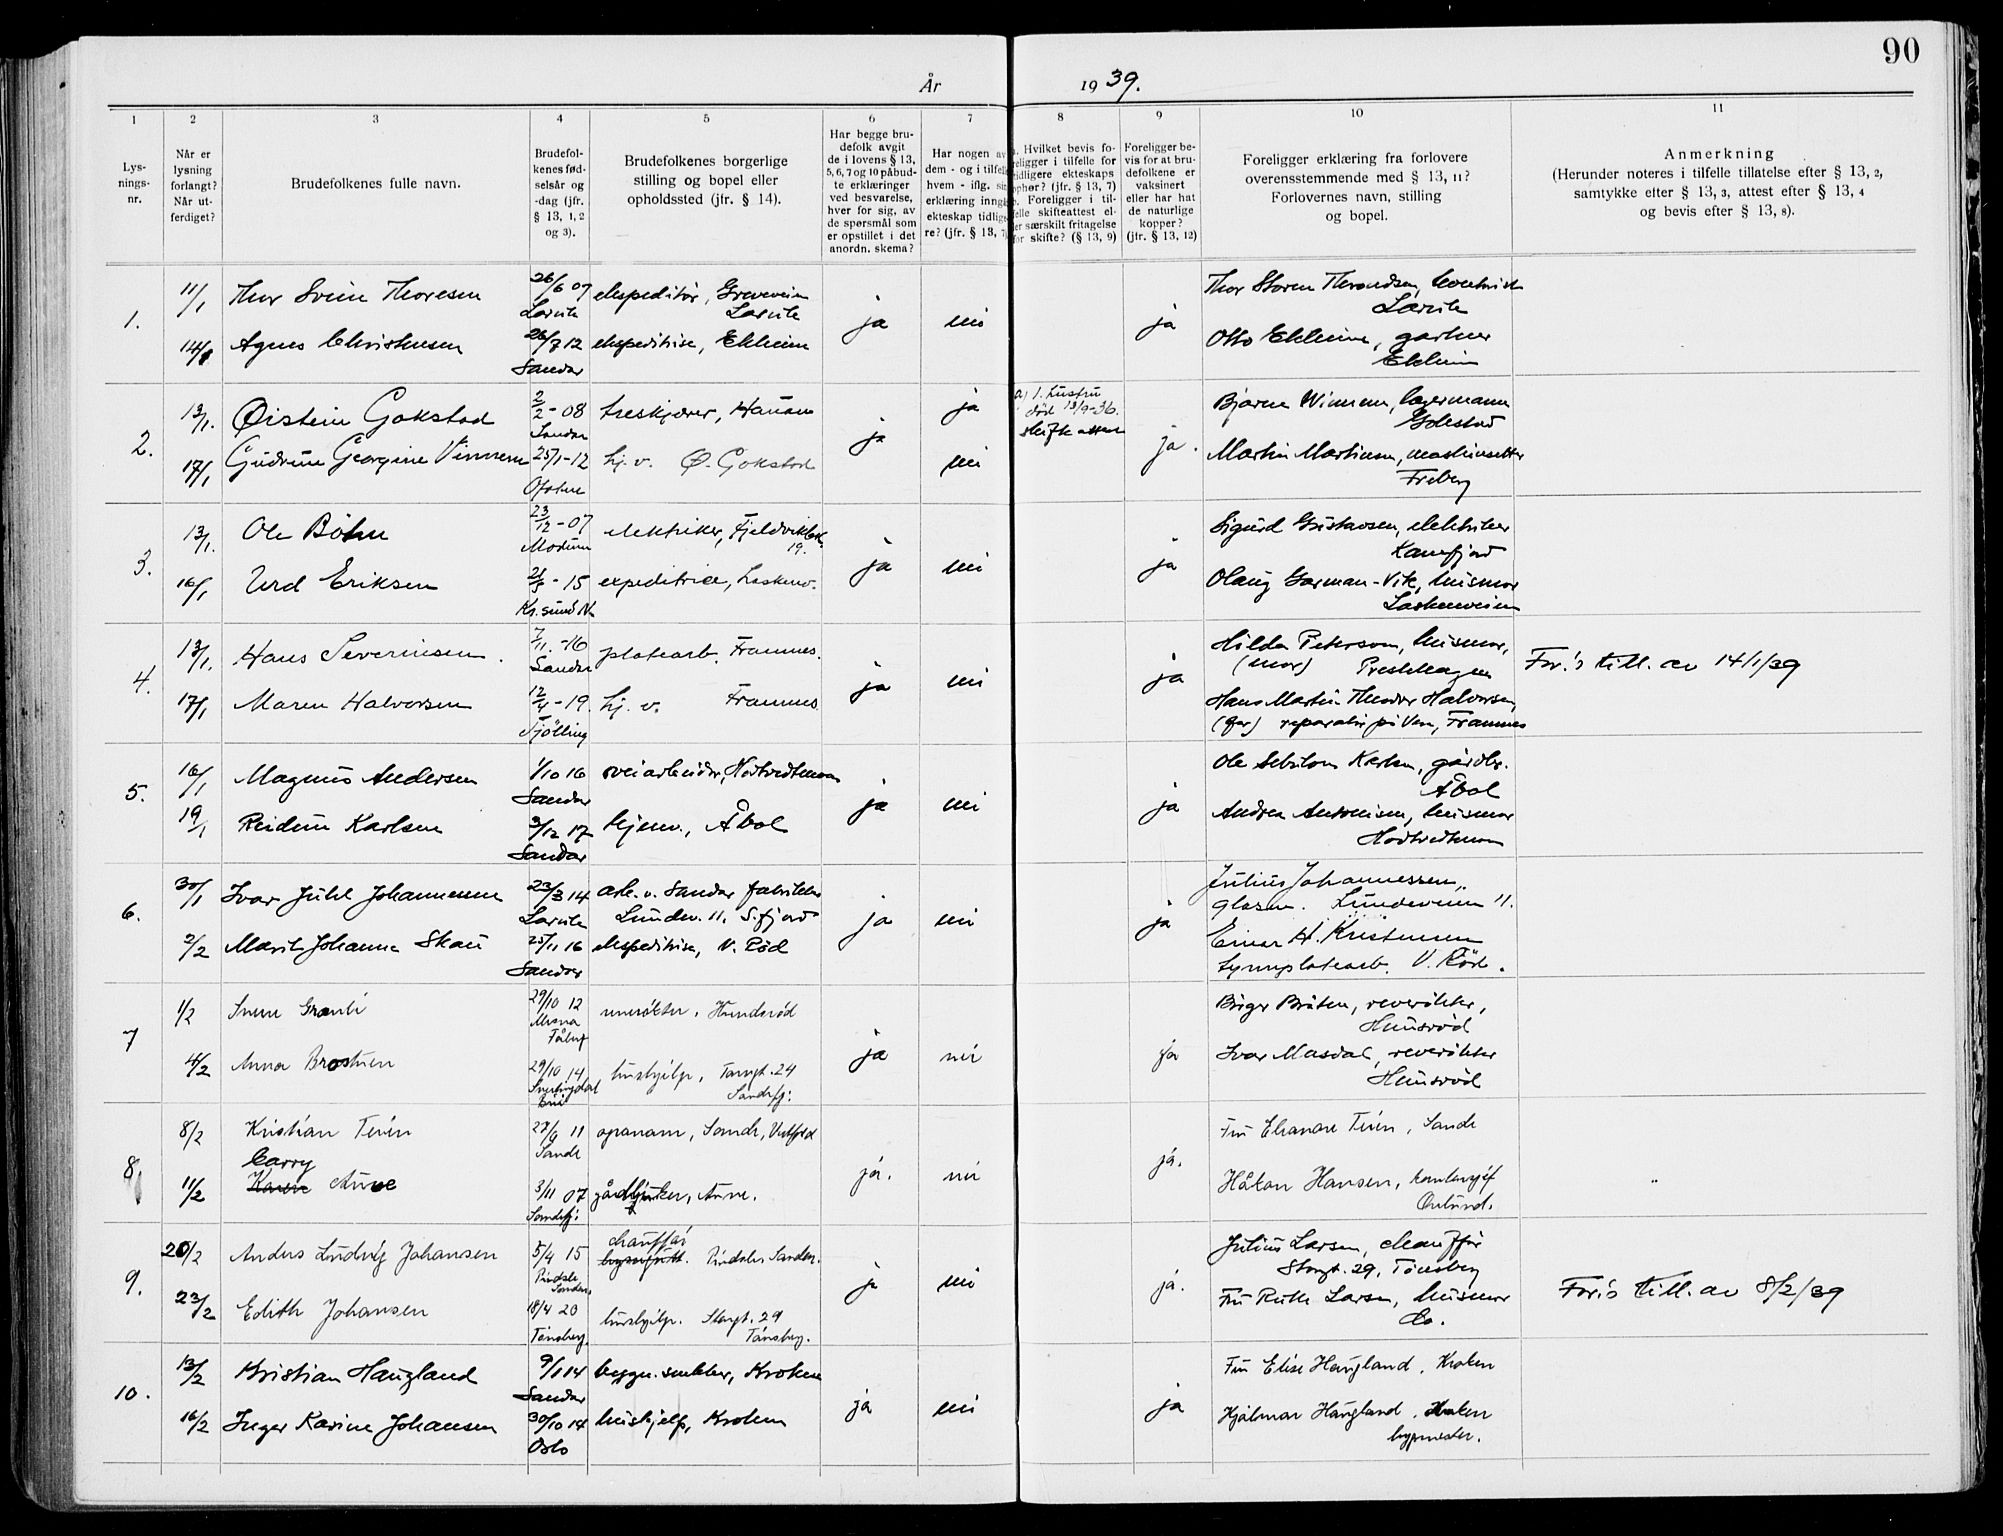 90
År 1939.
1 2 3 4 5 6 7 8 9 10 11
Lys-
nings-
nr.
Når er
lysning
forlangt?
Når ut-
ferdiget?
Brudefolkenes fulle navn.
Brudefol-
kenes fød-
selsår og
-dag (jfr.
§ 13, 1, 2
og 3).
Brudefolkenes borgerlige
stilling og bopel eller
opholdssted (jfr. § 14).
Har begge bru-
defolk avgit
de i lovens § 13,
5, 6, 7 og 10 påbud-
te erklæringer
ved besvarelse,
hver for sig, av
de spørsmål som
er opstillet i det
anordn. skema?
Har nogen av
dem - og i tilfelle
hvem - iflg. sin
erklæring inngå
ekteskap tidlige
re? (jfr. § 13, 7)
Hvilket bevis fo-
religger i tilfelle for
tidligere ekteskaps
ophør? (jfr. § 13, 7)
b. Foreligger i til-
felle skifteattest el-
ler særskilt fritagelse
for skifte? (§ 13, 9)
Foreligger be-
vis for at bru-
defolkene er
vaksinert
eller har hat
de naturlige
kopper?
(jfr. § 13, 12)
Foreligger erklæring fra forlovere
overensstemmende med § 13, 11?
Forlovernes navn, stilling
og bopel.
Anmerkning
(Herunder noteres i tilfelle tillatelse efter § 13, 2,
samtykke efter § 13, 3, attest efter § 13, 4
og bevis efter § 13, 8).
1.
11/1 Thor Svein Thoresen 26/6 07 Larvik ekspeditør, Greveveien Larvik
14/1 Agnes Christensen 26/7 12 Sandar ekspeditrise, Ekheim
ja nei ja
Larvik
Otto Ekheim, gartner
Ekheim
2.
13/1. Øistein Gokstad 2/2-08 Sandar treskjærer, Haukn
17/1 Gudrun Georgine Vimmem 25/1-12 hj.v. Ø. Gokstad
ja ja nei
a) 1. hustru
død 13/9-36.
skifteattest
ja.
Bjarne Wimmem, lagermann
Gokstad
Martin Martinsen, maskinsetter
Freberg
3.
13/1. Ole Bøhn 23/12-07 Modum elektriker, Fjeldvikbk. 19.
16/1 Urd Eriksen 21/3-15 Kr.sund N. expeditrice, Laskenv.
ja nei ja
Sigurd Gustavsen, elektriker
Kamfjord
Olaug Garman-Vik, husmor
Laskenveien
4.
13/1. Hans Severinsen. 7/11.-16 Sandar platearb. Framnes.
17/1 Maren Halvorsen 12/4-19. Tjølling hj. v. Framnes
ja nei ja
Hilda Peterson, husmor,
(mor) Presthagen
Hans Martin Theodor Halvorsen,
(far) reparatør på Ven, Framnes
For.'s till. av 14/1/39
5.
16/1 Magnus Andersen 1/10 16 Sandar veiarbeider, Hotvedtmoen
19/1 Reidun Karlsen 3/12 17 Sandar hjemv., Åbol
ja nei ja
Ole Karlsen, gårdbr.
Åbol
Andrea Antonisen, husmor
Hotvedtmoen
6.
30/1 Ivar Juhl Johannessen 23/3 14 Larvik arb. v. Sandar fabrikker
Lundev. 11. S.fjord
2/2 Marit Johanne Skau 25/11 16 Sandar ekspeditrise, V. Rød
ja nei ja
Julius Johannessen,
glasm. Lundeveien 11.
Einar H. Kristensen
tynnplatearb. V. Rød.
7
1/2 Svein Grønli 29/10 12 Mesna Fåberg reverøkter, Hundsrød
4/2 Anna Brostuen 29/10 14 hushjelp, Torvgt. 24
Sandefj.
ja nei ja
Birger Bråten, reverøkter,
Hunsrød
Ivar Masdal, reverøkter
Hunsrød
8.
8/2 Kristian Teien 27/9 11 Sande agronom, Sande, Vestfold
Carry
11/2 Karen Auve 3/11 07 Sandefj. Auve.
já. nei já.
Fru Eleanore Teien, Sande
Håkon Hansen, kontorsjef
9.
20/2 Anders Ludvig Johansen 5/4 15 Pindsle Sandar chauffør
Pindsle, Sandar.
23/2 Edith Johansen 18/4 20 Tønsberg. hushjelp. Storgt. 29
Tønsberg.
ja nei já.
Julius Larsen, chauffør
Storgt. 29, Tønsberg
Fru Ruth Larsen, husmor
Do.
For.'s till. av 8/2/39
10.
13/2 Kristian Haugland 9/1 14 Sandar byggn. snekker, Kroken
16/2 Inger Karine Johansen 30/10 14 Oslo hushjelp, Kroken
ja nei ja
Fru Elise Haugland, Kroken
Hjalmar Haugland, Kroken
byggmester.